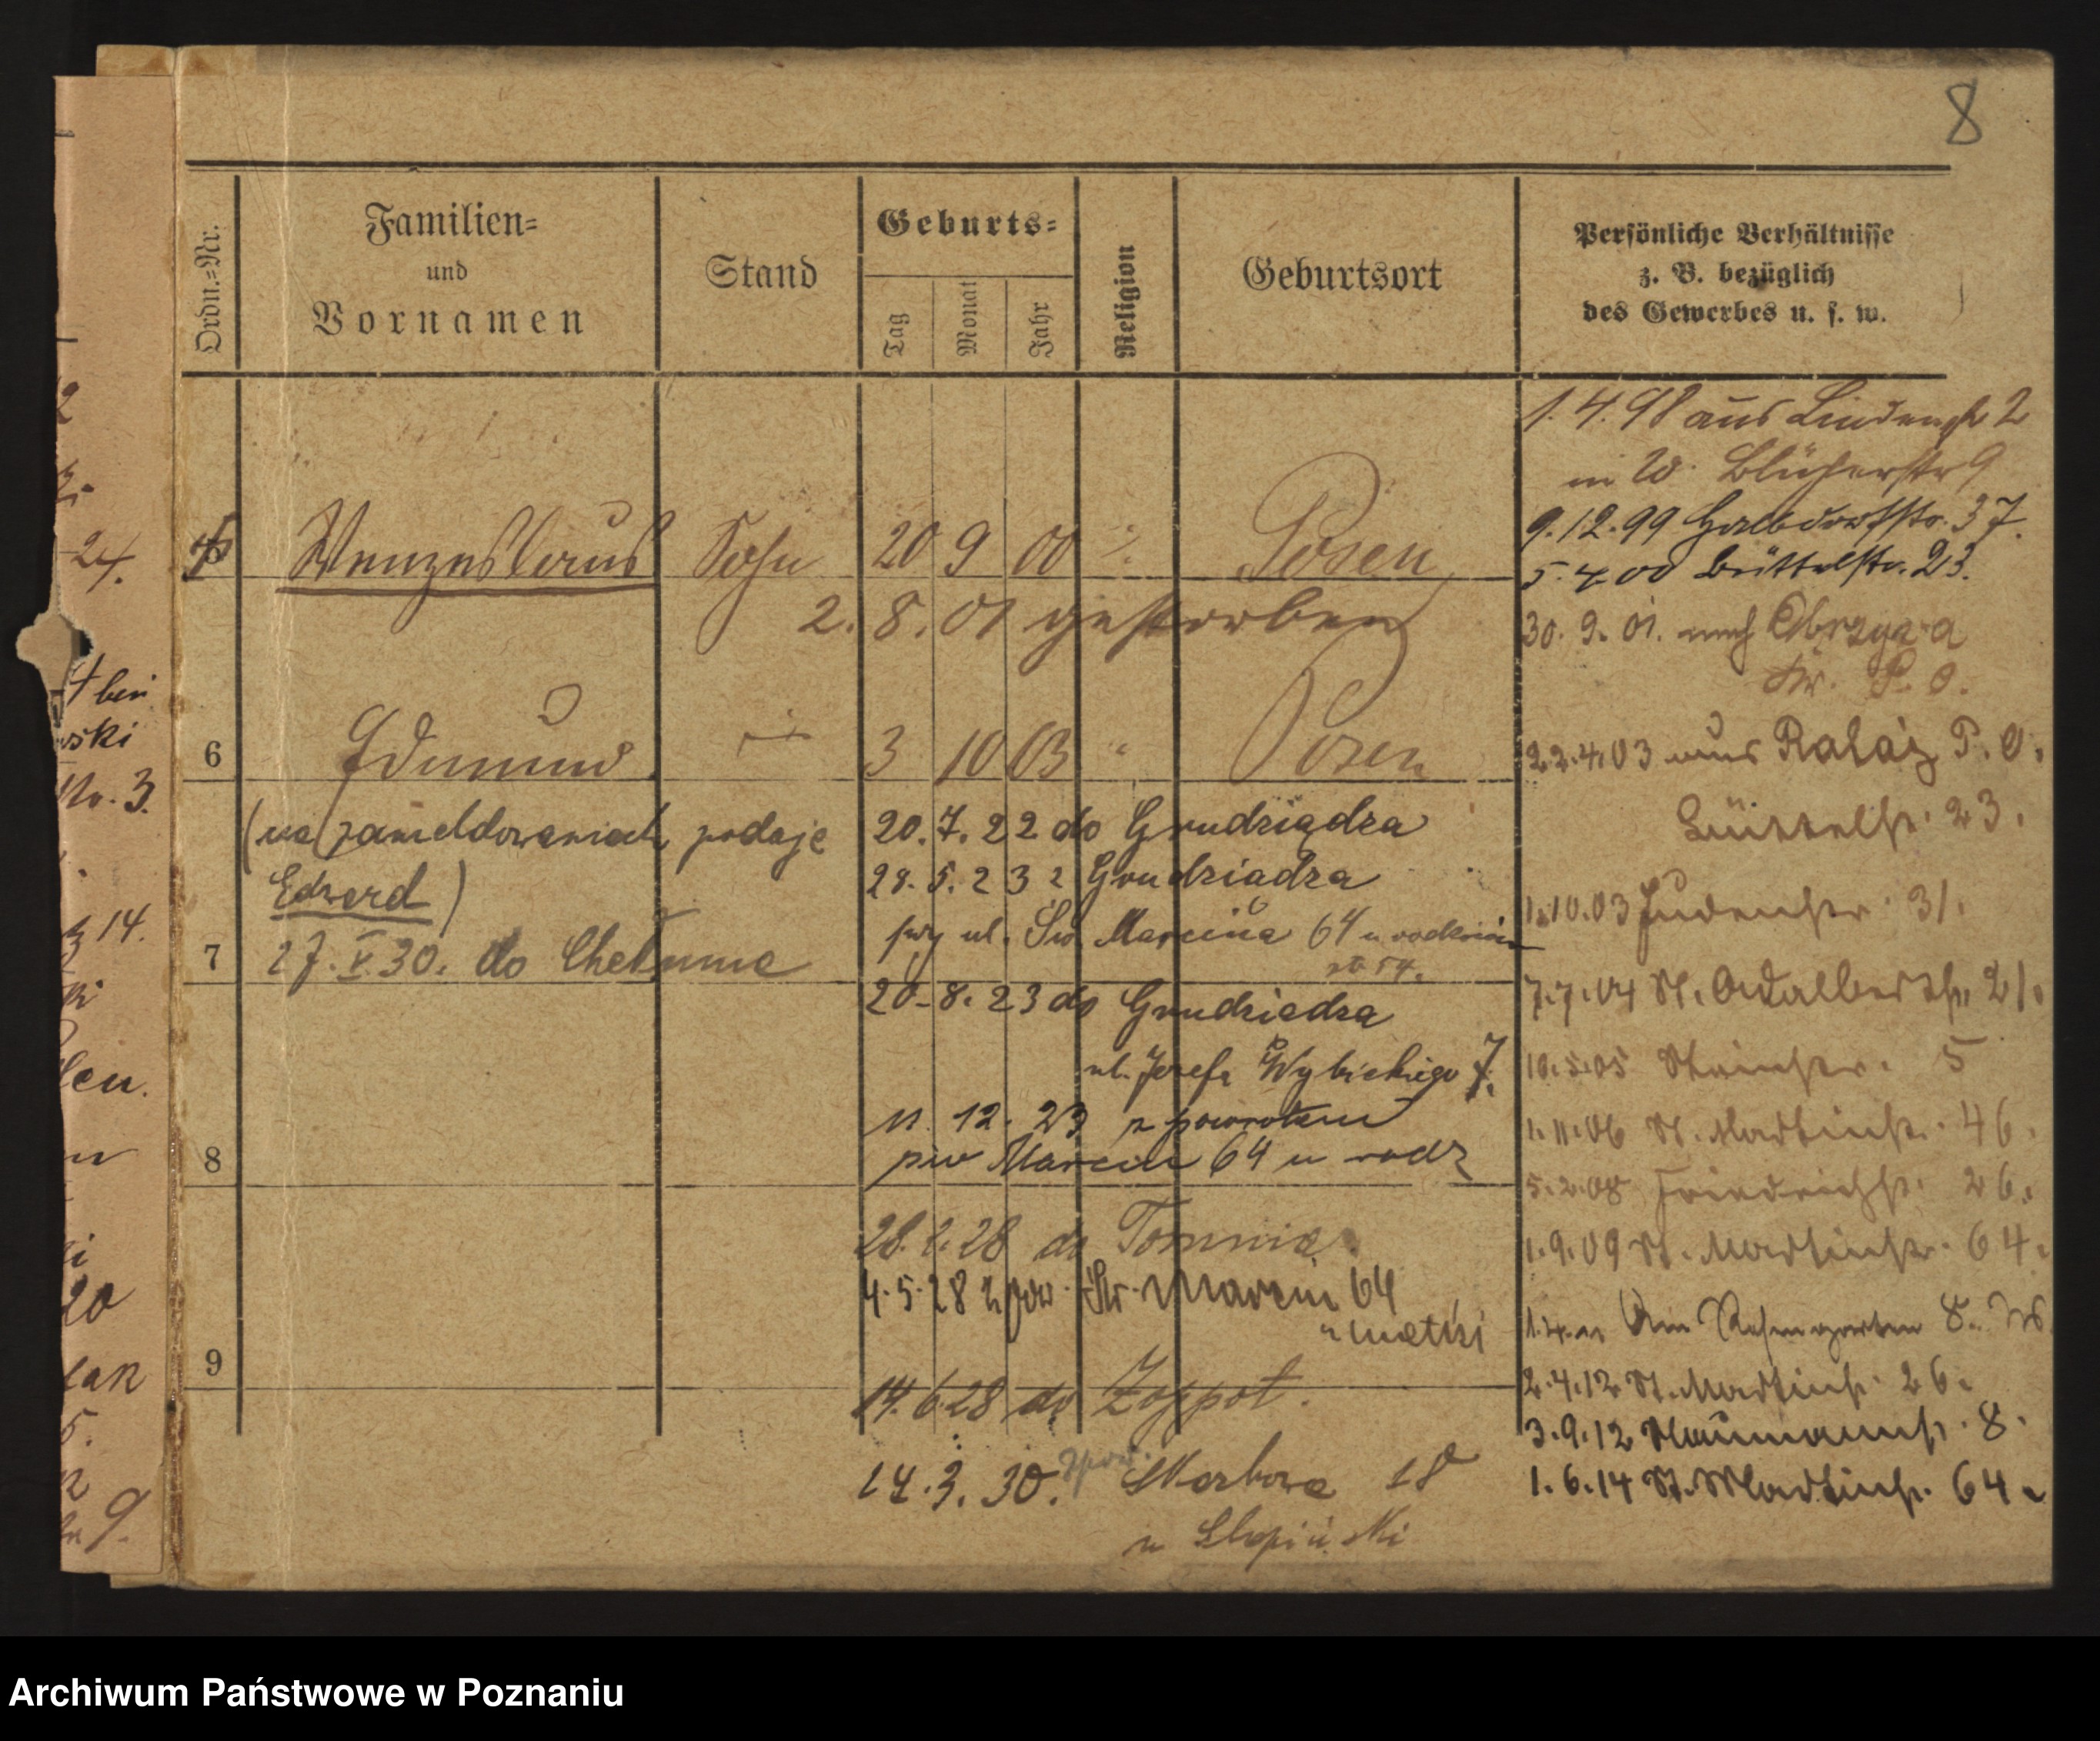 8
Ordn.=Nr.
Familien=
und
Vornamen
Stand
Geburts=
Tag
Monat
Jahr
Religion
Geburtsort
Persönliche Verhältnisse
z. B. bezüglich
des Gewerbes u. s. w.
1.4.98 aus Lindenstr 2
in W. Blücherstr 9
9.12.99 Halbdorfstr. 37.
5.4.00 Büttelstr. 23.
30.9.01. nach Obrzyca
Kr. P. O.
22.4.03 aus Rataj P. O.
Büttelstr. 23.
1.10.03 Judenstr. 31.
7.7.04 St. Adalbertstr. 21.
10.5.05 Steinstr. 5
1.11.06 St. Martinstr. 46.
5.2.08 Friedrichstr. 26.
1.9.09 St. Martinstr. 64.
1.4.11 Am Rosengarten 8.
2.4.12 St. Martinstr. 26.
3.9.12 Naumannstr. 8.
1.6.14 St. Martinstr. 64.
Wenzeslaus Sohn 20 9 00 Posen
2. 8. 01 gestorben
6 Edmund 3 10 03 " Posen
(na zameldowaniach podaje
Edward)
7 27. V. 30. do Chełmna
20. 7. 22 do Grudziądza
28. 5. 23 z Grudziadza
przy ul. Św. Marcina 64 u rodziców
20. 8. 23 do Grudziadza
ul. Józefa Wybickiego 7.
11. 12. 23 z powrotem
8 Marcin 64 u rodz
28. 2. 28 do Torunia.
4. 5. 28 z pow. Św. Marcin 64
u matki
9
14. 6. 28 do Zoppot.
14. 3. 30. zpow. Skarbowa 18
24.
ski
Str. 3.
14.
20
5.
9.
Archiwum Państwowe w Poznaniu